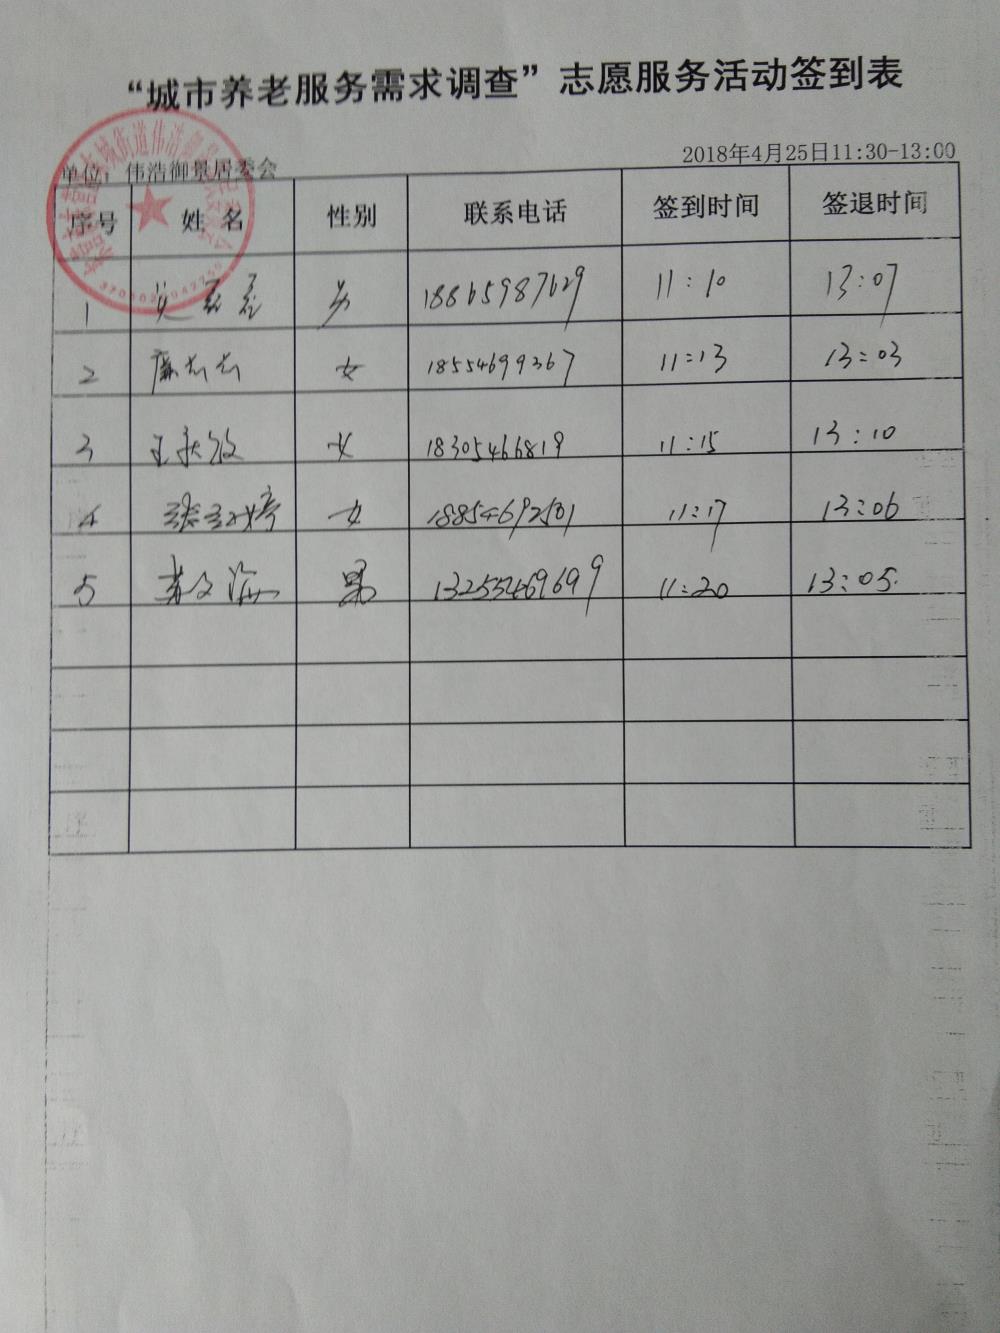 “城市养老服务需求调查”志愿服务活动签到表
2018年4月25日11:30-13:00
单位：伟浩御景居委会
序号 姓名 性别 联系电话 签到时间 签退时间
1 男 18865987629 11:10 13:07
2 女 18554699367 11:13 13:03
3 女 18305466819 11:15 13:10
4 女 18854692501 11:17 13:06
5 男 13255469699 11:20 13:05